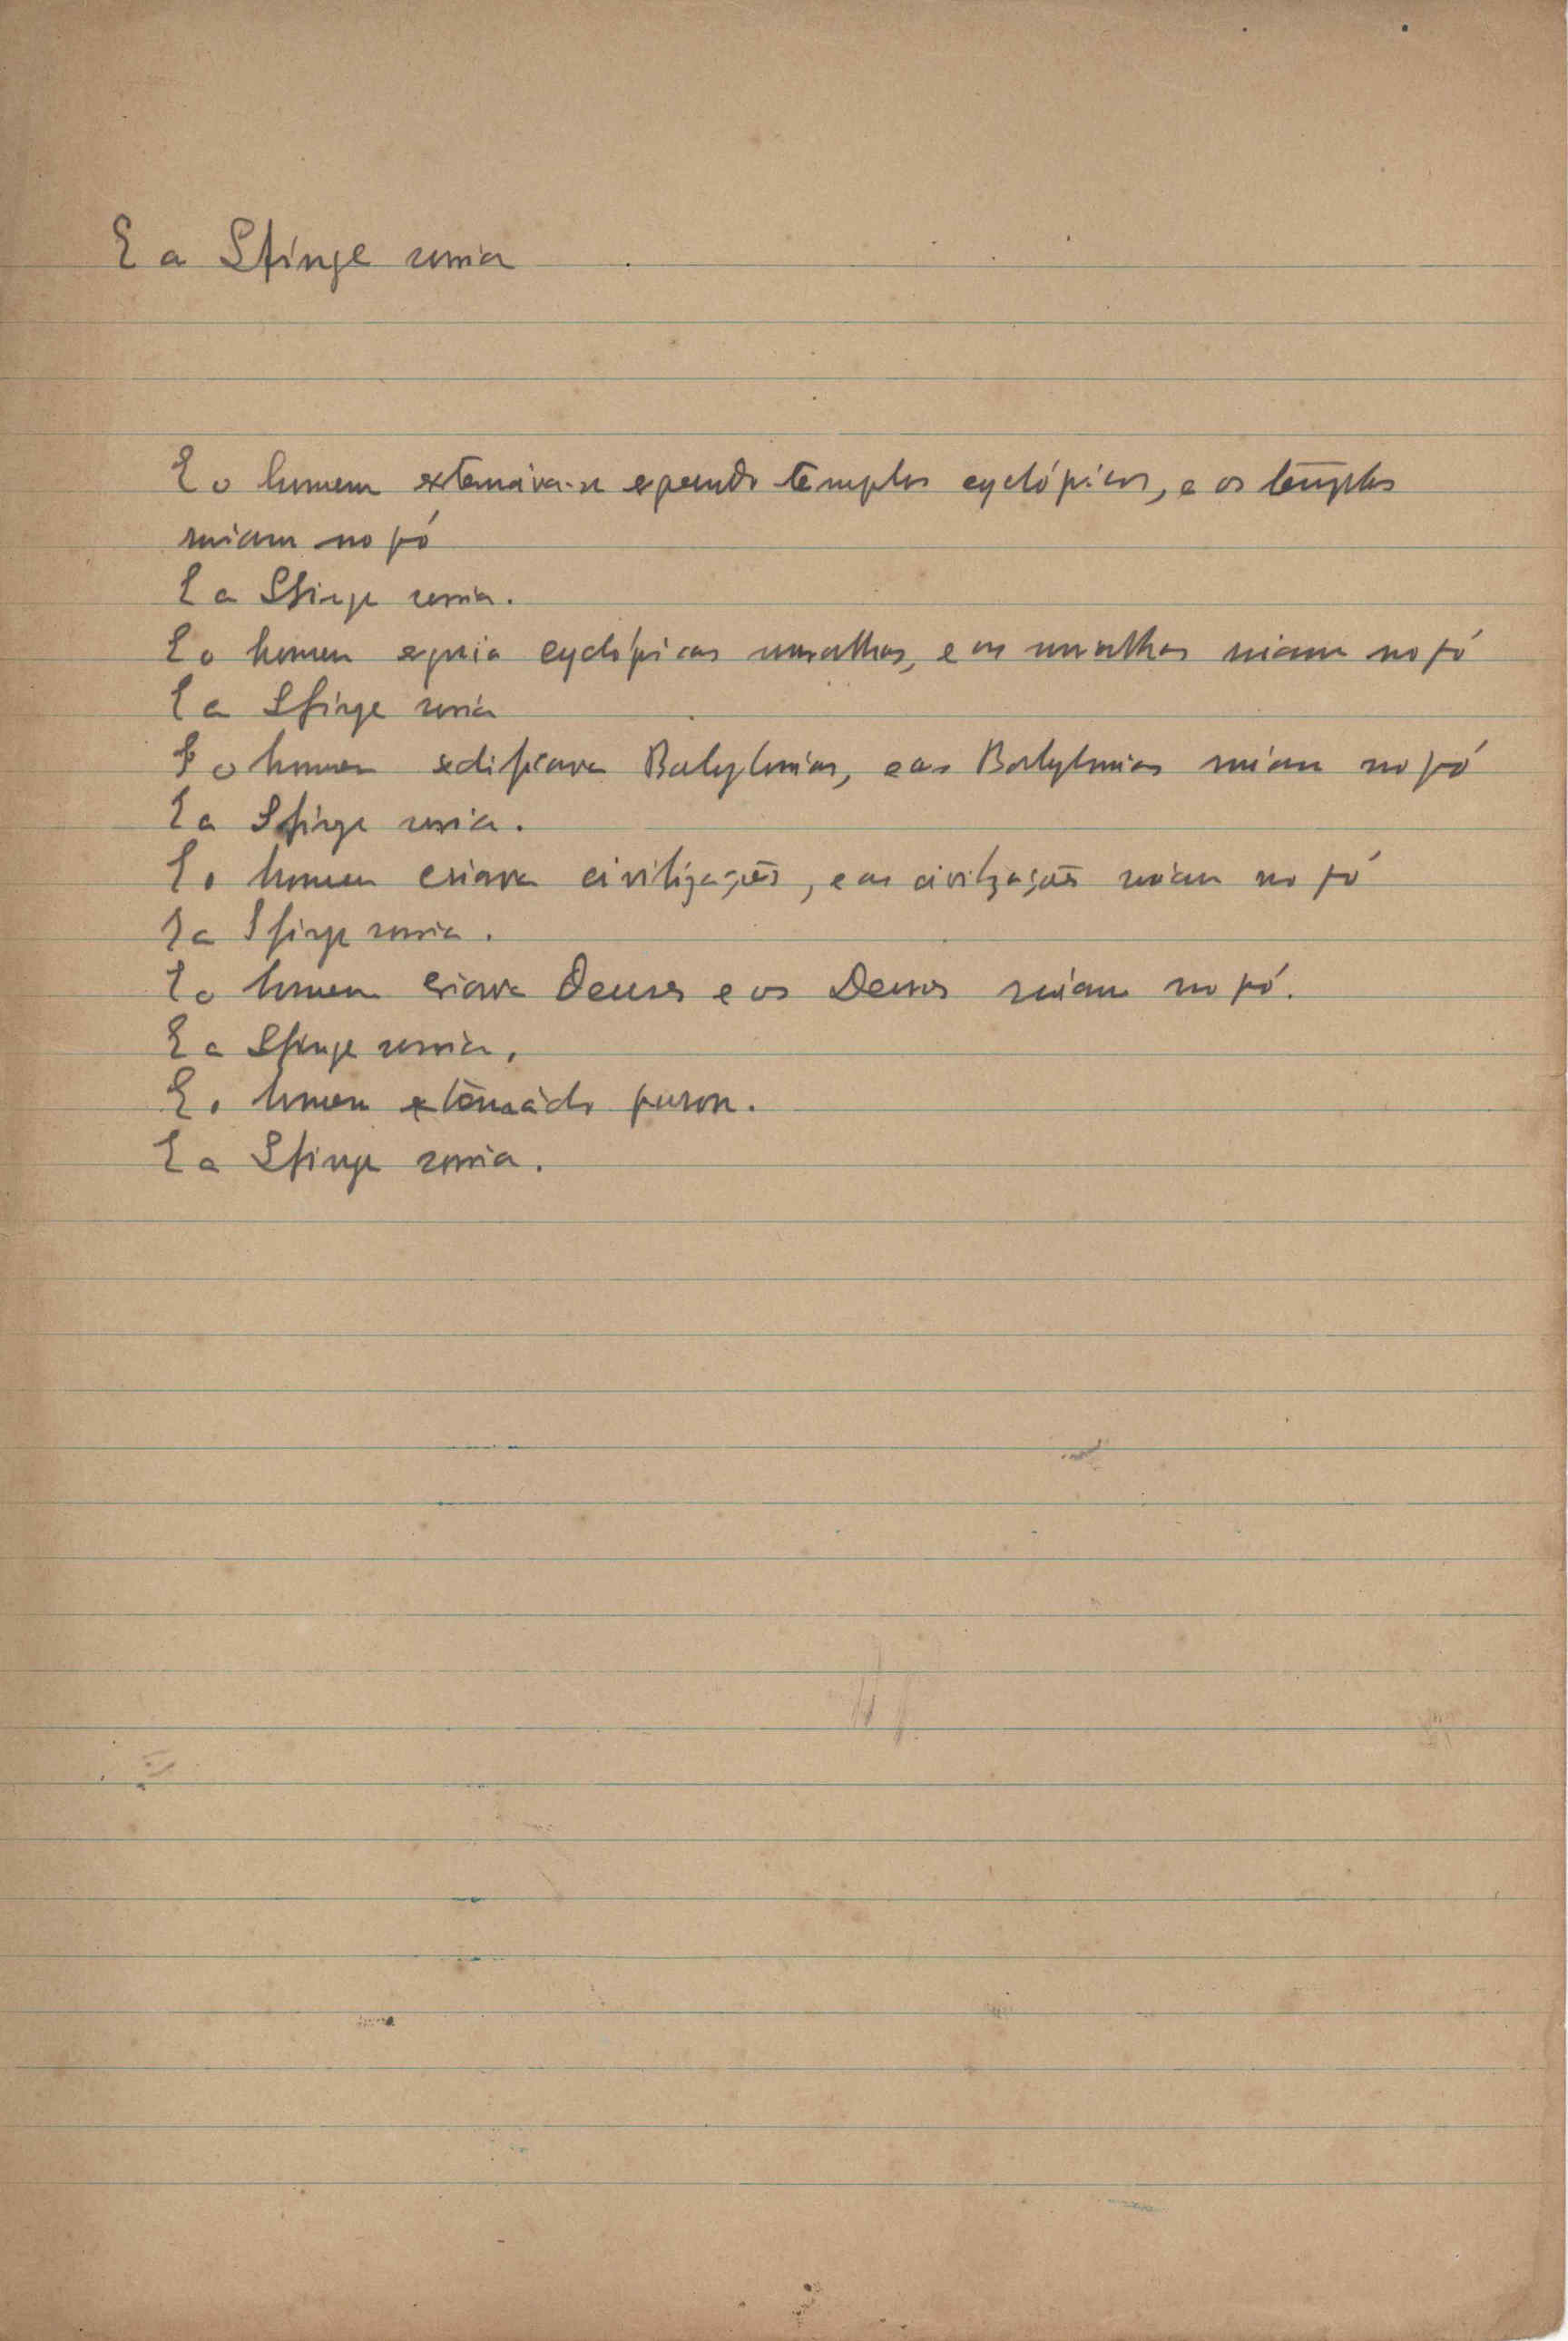 E a Sfinge sorria
E o homem extenuáva-se erguendo templos cyclópicos, e os templos
ruiam no pó
E a Sfinge sorria.
E o homem erguia cyclópicas muralhas, e as muralhas ruiam no pó
E a Sfinge sorria
E o homem edificava Babylonias, e as Babylonias ruiam no pó
E a Sfinge sorria.
E o homem criava civilizações, e as civilizações ruiam no pó
E a Sfinge sorria.
E o homem criava Deuses e os Deuses ruíam no pó.
E a Sfinge sorria.
E o homem extenuádo parou.
E a Sfinge sorria.